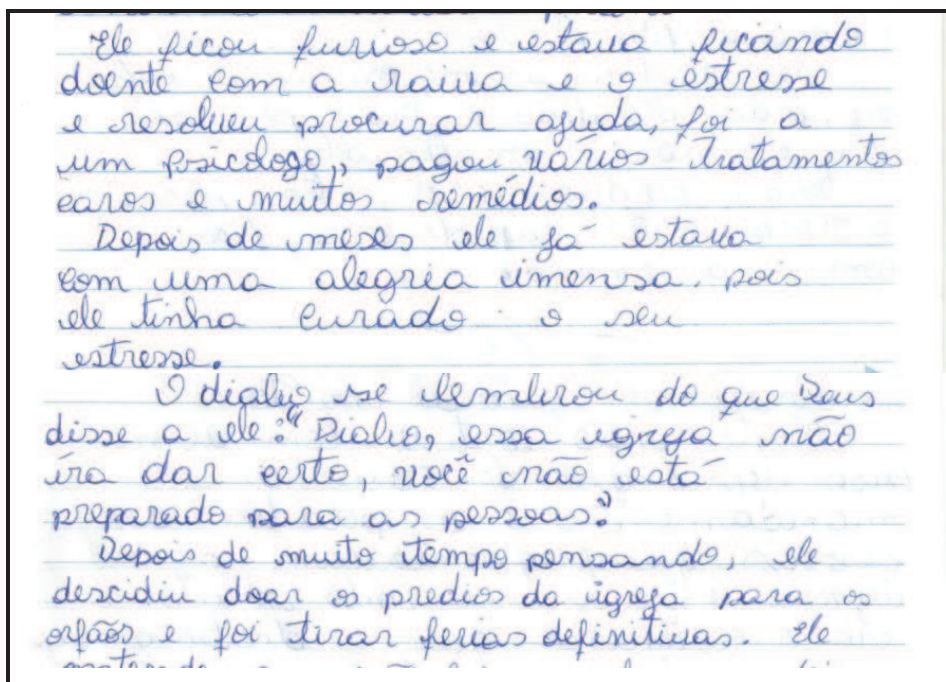 Ele ficou furioso e estava ficando
doente com a raiva e o estresse
e resolveu procurar ajuda, foi a
um psicologo,, pagou vários tratamentos
caros e muitos remédios.
Depois de meses ele já estava
com uma alegria imensa. pois
ele tinha curado o seu
estresse.
O diabo se lembrou do que Deus
disse a ele: "Diabo, essa igreja não
ira dar certo, você não está
preparado para as pessoas."
Depois de muito tempo pensando, ele
descidiu doar os predios da igreja para os
orfãos e foi tirar ferias definitivas. Ele